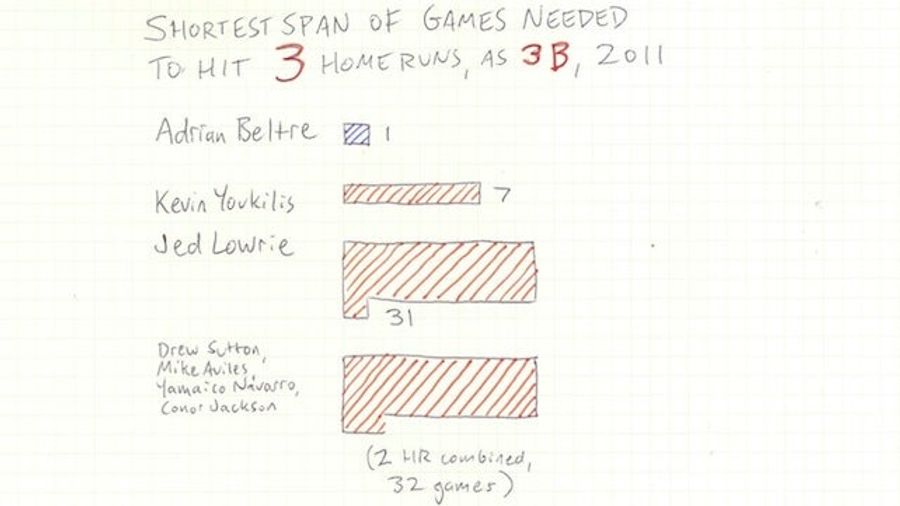 SHORTEST SPAN OF GAMES NEEDED
TO HIT 3 HOMERUNS, AS 3B, 2011
Adrian Beltre 1
Kevin Youkilis 7
Jed Lowrie
31
Drew Sutton,
Mike Aviles,
Yamaico Navarro,
Conor Jackson
(2 HR combined,
32 games)